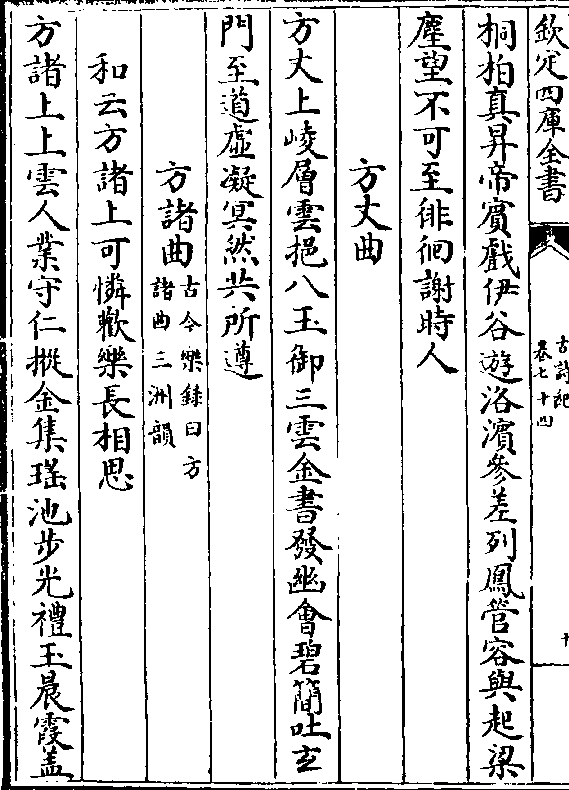 欽定四庫全書
古詩紀
卷七十四
桐柏真昇帝賓戲伊谷遊洛濱參差列鳳管容與起梁
塵望不可至徘徊謝時人
方丈曲
方丈上崚層雲挹八玉御三雲金書發幽會碧簡吐玄
門至道虛凝冥然共所遵
方諸曲
古今樂錄曰方
諸曲三洲韻
和云方諸上可憐歡樂長相思
方諸上上雲人業守仁摐金集瑤池步光禮玉晨霞盖